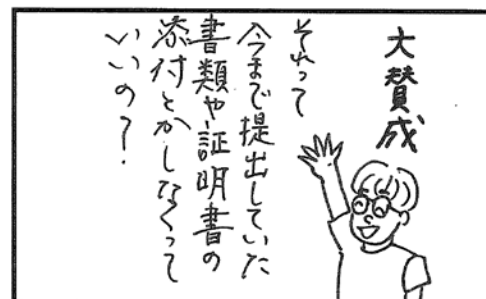 大賛成
それって
今まで提出していた
書類や証明書の
添付とかしなくって
いいの？